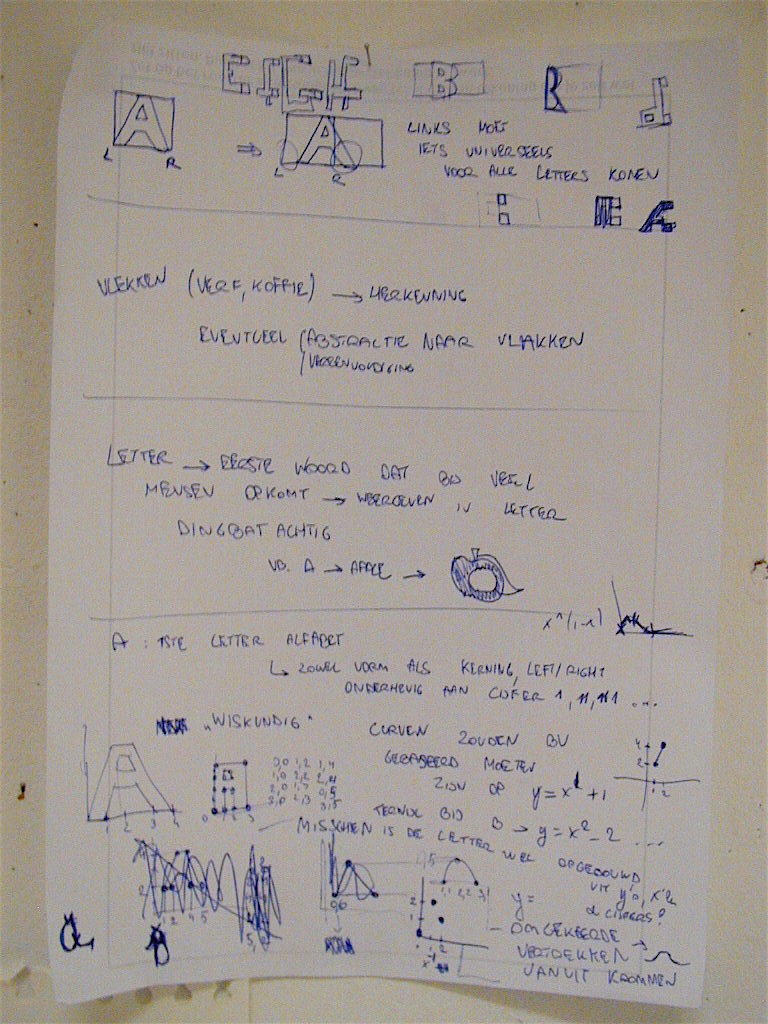 B R d
A A
L R ⇒ L R
LINKS MOET
IETS UNIVERSEELS
VOOR ALLE LETTERS KOMEN
E A
VLEKKEN (VERF, KOFFIE) → HERKENNING
EVENTUEEL / ABSTRACTIE NAAR VLAKKEN
/ VEREENVOUDIGING
LETTER → EERSTE WOORD DAT BIJ VEEL
MENSEN OPKOMT → WEERGEVEN IN LETTER
DINGBAT ACHTIG
VB. A → APPLE →
A : 1STE LETTER ALFABET
↳ ZOWEL VORM ALS KERNING, LEFT/RIGHT
ONDERHEVIG AAN CIJFER 1, 11, 111 ...
„WISKUNDIG"
CURVEN ZOUDEN BV
GEBASEERD MOETEN
ZIJN OP y = x¹ + 1
TERWIJL BIJ B → y = x² - 2 ....
MISSCHIEN IS DE LETTER WEL OPGEBOUWD
UIT y's, x'en
& CIJFERS?
y =
- OMGEKEERDE →
VERTREKKEN
VANUIT KROMMEN